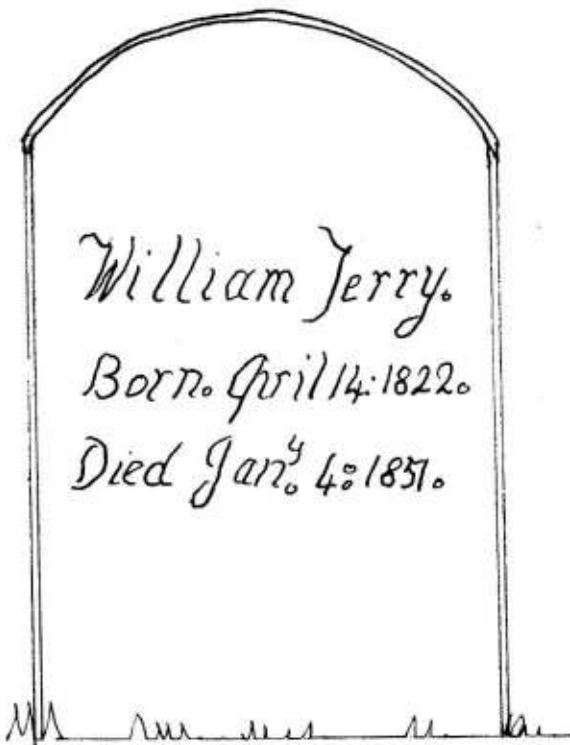 William Terry.
Born. April 14:1822.
Died Jan.ʸ 4:1851.